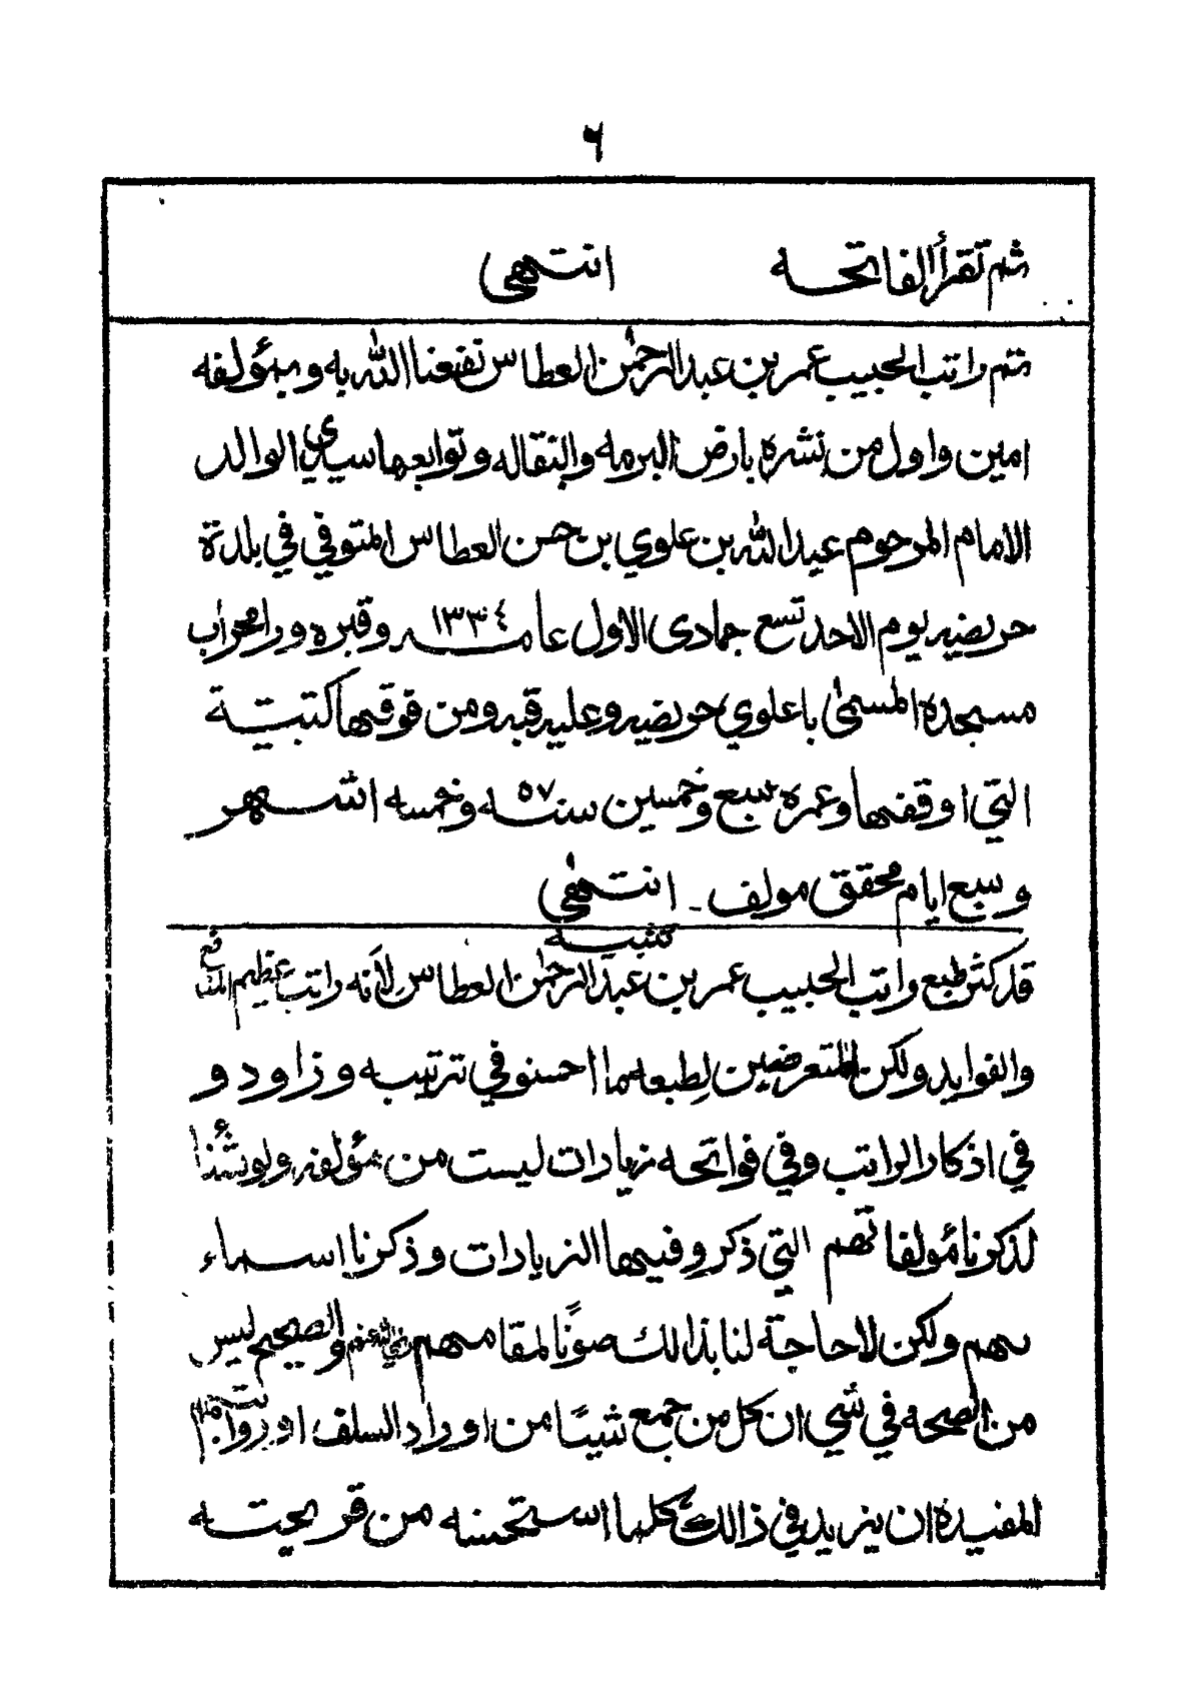 ٦
ثم تقرأ الفاتحه انتهى
تم راتب الحبيب عمر بن عبد الرحمٰن العطاس نفعنا الله به وبمؤلفه
امين واول من نشره بارض البرمه والتقاله وتوابعها سيدي الوالد
الامام المرحوم عبد الله بن علوي بن حسن العطاس المتوفي في بلدة
حريضه يوم الاحد تسع جمادى الاول عامـ ١٣٣٤ ـه وقبره وراء محراب
مسجده المسمى باعلوي حريضه وعليه قبه ومن فوقها كتبيـة
التي اوقفها وعمره سبع وخمسين سنـ ٥٧ ـه وخمسه اشهر
وسبع ايام محقق مولف - انتهى
تنبيه
قد كثر طبع راتب الحبيب عمر بن عبد الرحمٰن العطاس لأنه راتب عظيم المنافع
والفوايد ولكن المتعرضين لطبعه ما احسنو في ترتيبه وزاودو
في اذكار الراتب وفي فواتحه زيادات ليست من مؤلفه ولو شئنا
لذكرنا مؤلفاتهم التي ذكرو فيها الزيادات وذكرنا اسماء
هم ولكن لا حاجة لنا بذالك صونًا لمقامهم رضي الله عنهم والصحيح ليس
من الصحه في شي ان كل من جمع شيئًا من اوراد السلف او رواتبهم
المفيده ان يزيد في ذالك كلما استحسنه من قريحته